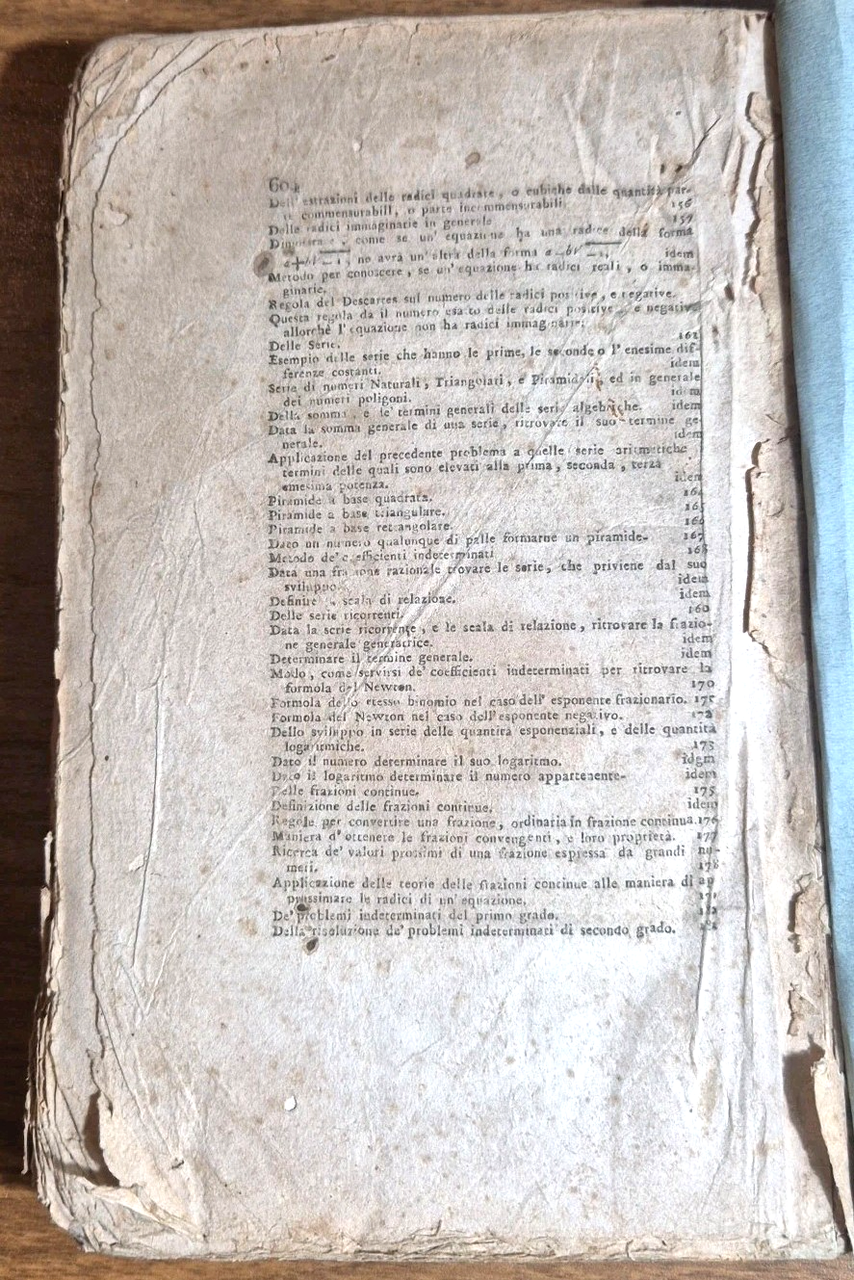 60
Dell' estrazioni delle radici quadrate, o cubiche dalle quantità par-
te commensurabili, o parte incommensurabili. 156
Delle radici immaginarie in generale 157
come se un' equazione ha una radice della forma
a+b√-1, ne avrà un' altra della forma a-b√-1, idem
Metodo per conoscere, se un' equazione ha radici reali, o imma-
ginarie.
Regola del Descartes sul numero delle radici positive, e negative.
Questa regola da il numero esatto delle radici positive, e negative
allorchè l' equazione non ha radici immaginarie.
Delle Serie. 162
Esempio delle serie che hanno le prime, le seconde o l' enesime dif-
ferenze costanti. idem
Serie di numeri Naturali, Triangolari, e Piramidali, ed in generale
dei numeri poligoni. idem
Della somma, e le termini generali delle serie algebriche. idem
Data la somma generale di una serie, ritrovare il suo termine ge
nerale. idem
Applicazione del precedente problema a quelle serie aritmetiche
termini delle quali sono elevati alla prima, seconda, terza
emesima potenza. idem
Piramide a base quadrata. 164
Piramide a base triangulare. 165
Piramide a base rettangolare. 166
Dato un numero qualunque di palle formarne un piramide- 167
Metodo de' coefficienti indeterminati 168
Data una frazione razionale trovare le serie, che priviene dal suo
sviluppo. idem
Definire scala di relazione. idem
Delle serie ricorrenti. 160
Data la serie ricorrente, e le scala di relazione, ritrovare la frazio-
ne generale generatrice. idem
Determinare il termine generale. idem
Modo, come servirsi de' coefficienti indeterminati per ritrovare la
formola del Newton. 170
Formola dello stesso binomio nel caso dell' esponente frazionario. 171
Formola del Newton nel caso dell' esponente negativo. 172
Dello sviluppo in serie delle quantità esponenziali, e delle quantità
logaritmiche. 173
Dato il numero determinare il suo logaritmo. idgm
Dato il logaritmo determinare il numero appartenente- idem
Delle frazioni continue. 175
Definizione delle frazioni continue. idem
Regole per convertire una frazione, ordinaria in frazione continua. 176
Maniera d' ottenere le frazioni convengenti, e loro proprietà. 177
Ricerca de' valori prossimi di una frazione espressa da grandi nu-
meri. 178
Applicazione delle teorie delle frazioni continue alle maniera di ap
prossimare le radici di un' equazione.
De' problemi indeterminati del primo grado.
Della risoluzione de' problemi indeterminati di secondo grado.